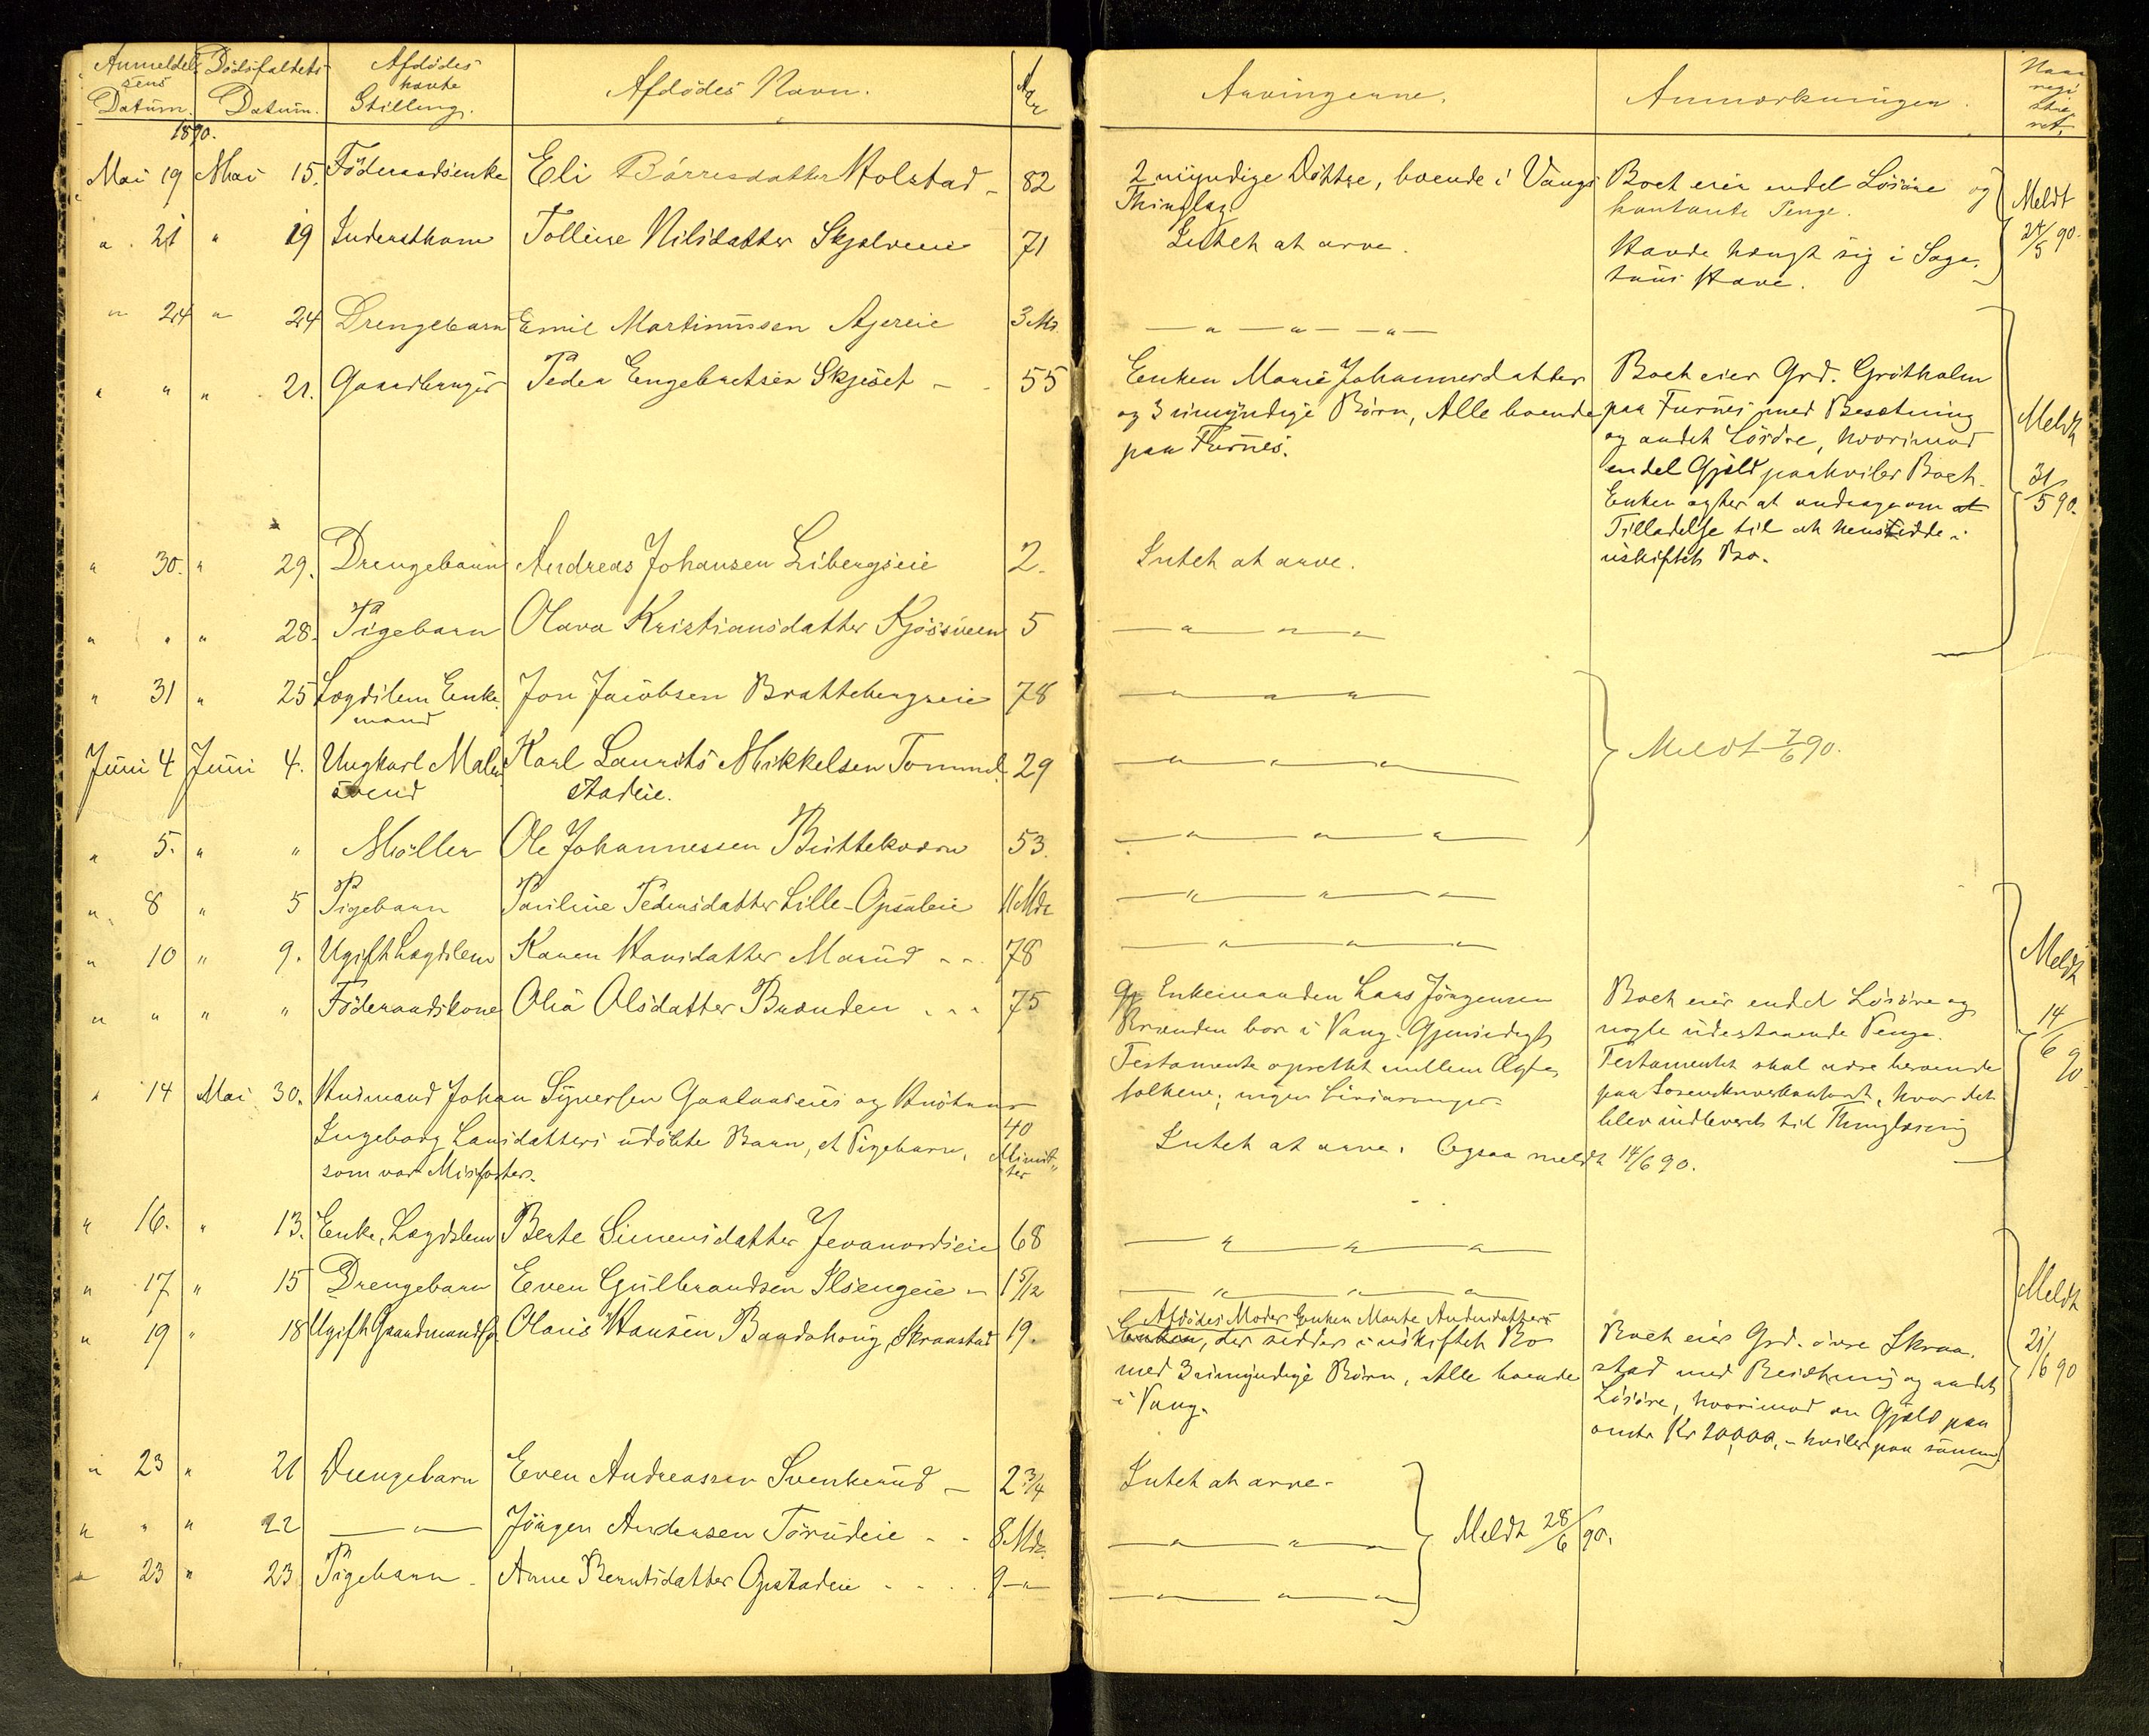 Anmeldel- Dödsfaldets Afdödes Afdödes Navn. Aar
sens havte
Datum. Datum. Stilling.
1890.
Mai 19 Mai 15. Föderaadsenke Eli Börresdatter Holstad - 82
" 21 " 19 Inderstkone Solline Nilsdatter Skjelveie 71
" 24 " 24 Drengebarn Emil Martinussen Ajereie 3 Mr.
" " " 21. Gaardbruger Peder Engebretsen Skjeset - - 55
" 30. " 29. Drengebarn Andreas Johansen Libergseie 2.
" " " 28. Pigebarn Olava Kristiansdatter Kjösveen 5
" 31 " 25 Lægdslem Enke- Jon Jacobsen Brattebergseie 78
mand
Juni 4 Juni 4. Ungkarl Maler- Karl Laurits Mikkelsen Tommel- 29
svend stadeie.
" 5. " " Möller Ole Johannessen Bittekværn 53.
" 8 " 5 Pigebarn Pauline Pedersdatter Lille-Opsaleie 11 Mdr
" 10 " 9. Ugift Lægdslem Karen Hansdatter Marud - - 78
" " " " Föderaadskone Olia Olsdatter Brænden - - - 75
" 14 Mai 30. Husmand Johan Syversen Gaalaaseies og Hustru
Ingeborg Larsdatters udöbte Barn, et Pigebarn, 40 Minut-
som var Misfoster. ter
" 16. " 13. Enke, Lægdslem Berte Simensdatter Jevanordseie 68
" 17 " 15 Drengebarn Even Gulbrandsen Ilsengeie - 1 5/12
" 19 " 18 Ugift Gaardmandss. Olaus Hansen Bandahoug, Skraastad 19.
" 23 " 21 Drengebarn Even Andreassen Svenkerud - 2 3/4
" " " 22 — " — Jörgen Andersen Torudeie - - 8 Mdr.
" 23 " 23 Pigebarn - Anne Berntsdatter Opstadeie - - - - 9 — " —
Arvingerne. Anmærkninger. Naar
regi-
stre-
ret.
2 myndige Döttre, boende i Vangs Boet eier endel Lösöre og Meldt
Thinglag. kontante Penge. 24/5 90.
Intet at arve. Havde hængt sig i Saga-
tuns Have.
— " — " — — " —
Enken Marie Johannesdatter Boet eier Grd. Grötholm
og 3 umyndige Börn, Alle boende paa Furnes med Besætning Meldt
paa Furnes. og andet Lösöre, hvorimod
endel Gjæld paahviler Boet. 31/5 90.
Enken agter at andrage om at
Tilladelse til at hensidde i
Intet at arve. uskiftet Bo.
— " — " — " —
— " — " — " —
— " — " — " — Meldt 7/6 90.
— " — " — " —
— " — " — " —
— " — " — " — Meldt
Enkemanden Lars Jörgensen Boet eier endel Lösöre og 14/6 90
Brænden bor i Vang. Gjensidigt nogle udestaaende Penge.
Testamente oprettet mellem Ægte- Testamentet skal være beroende
folkene; ingen Livsarvinger. paa Sorenskriverkontoret, hvor det
blev indleveret til Thinglæsning
Intet at arve. Ogsaa meldt 14/6 90.
— " — " — " —
— " — " — " — Meldt
Afdödes Moder Enken Marte Andersdatter
Enken, der sidder i uskiftet Bo Boet eier Grd. övre Skraa- 21/6 90
med 3 umyndige Börn, Alle boende stad med Besætning og andet
i Vang. Lösöre, hvorimod en Gjæld paa
omtr Kr 20,000,- hviler paa samme
Intet at arve.
— " — " — " — Meldt 28/6 90.
— " — " — " —